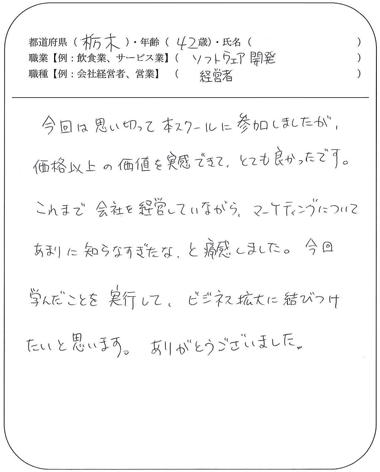 都道府県（ 栃木 ）・年齢（ 42歳）・氏名（ ）
職業【例：飲食業、サービス業】（ ソフトウェア開発 ）
職種【例：会社経営者、営業】（ 経営者 ）
今回は思い切って本スクールに参加しましたが、
価格以上の価値を実感できて、とても良かったです。
これまで会社を経営していながら、マーケティングについて
あまりに知らなすぎたな、と痛感しました。今回
学んだことを実行して、ビジネス拡大に結びつけ
たいと思います。ありがとうございました。